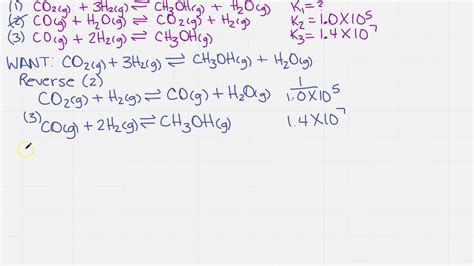 (1) CO₂(g) + 3H₂(g) ⇌ CH₃OH(g) + H₂O(g) K₁ = ?
(2) CO(g) + H₂O(g) ⇌ CO₂(g) + H₂(g) K₂ = 1.0×10⁵
(3) CO(g) + 2H₂(g) ⇌ CH₃OH(g) K₃ = 1.4×10⁷
WANT: CO₂(g) + 3H₂(g) ⇌ CH₃OH(g) + H₂O(g)
Reverse (2)
CO₂(g) + H₂(g) ⇌ CO(g) + H₂O(g) 1/1.0×10⁵
(3) CO(g) + 2H₂(g) ⇌ CH₃OH(g) 1.4×10⁷